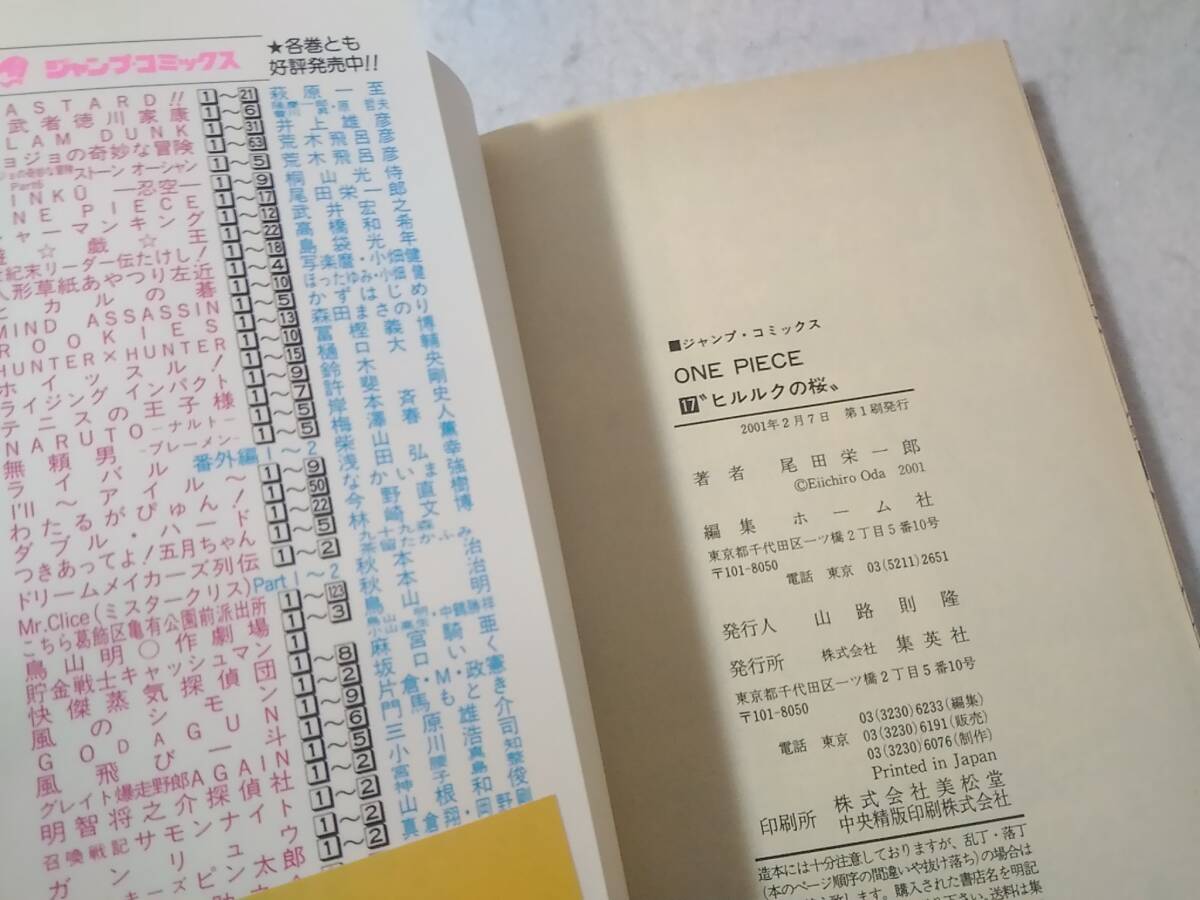 ジャンプ・コミックス
★各巻とも
好評発売中!!
ASTARD!! 1〜21 萩原一至
武者徳川家康 1〜6
LAM DUNK 1〜31 井上雄彦
ョジョの奇妙な冒険 1〜63 荒木飛呂彦
ストーン オーシャン 1〜5 荒木飛呂彦
INKŪ ―忍空― 1〜9 桐山光侍
NE PIECE 1〜17 尾田栄一郎
ャーマンキング 1〜12 武井宏之
戯☆王 1〜22 高橋和希
世紀末リーダー伝たけし! 1〜18 島袋光年
人形草紙あやつり左近 1〜4 写楽麿・小畑健
ヒカルの碁 1〜10 ほったゆみ・小畑健
MIND ASSASSIN 1〜5 かずはじめ
ROOKIES 1〜13 森田まさのり
HUNTER×HUNTER 1〜10 冨樫義博
ホイッスル! 1〜15 樋口大輔
ライジング インパクト 1〜9 鈴木央
テニスの王子様 1〜7 許斐剛
NARUTO―ナルト― 1〜5 岸本斉史
無頼男―ブレーメン― 1〜5 梅澤春人
ライバル 番外編 1〜2 柴山薫
I'll 〜アイル〜 1〜9 浅田弘幸
わたるがぴゅん! 1〜50 なかいま強
ダブル・ハード 1〜22 今野直樹
つきあってよ!五月ちゃん 1〜5 林崎文博
ドリームメイカーズ列伝 1〜2
Mr.Clice(ミスタークリス) Part1〜2 秋本治
こちら葛飾区亀有公園前派出所 1〜123 秋本治
鳥山明〇作劇場 1〜3 鳥山明
貯金戦士キャッシュマン
快傑蒸気探偵団 1〜8 麻宮騎亜
風のシモン
GODAGUN
風飛び一斗
グレイト爆走野郎AGAIN
明智将之介探偵社
召喚戦記サモンナイト
■ジャンプ・コミックス
ONE PIECE
17 〝ヒルルクの桜〟
2001年2月7日 第1刷発行
著者 尾田栄一郎
©Eiichiro Oda 2001
編集 ホーム社
東京都千代田区一ツ橋2丁目5番10号
〒101-8050
電話 東京 03(5211)2651
発行人 山路則隆
発行所 株式会社 集英社
東京都千代田区一ツ橋2丁目5番10号
〒101-8050
03(3230)6233(編集)
電話 東京 03(3230)6191(販売)
03(3230)6076(制作)
Printed in Japan
印刷所 株式会社美松堂
中央精版印刷株式会社
造本には十分注意しておりますが、乱丁・落丁
(本のページ順序の間違いや抜け落ち)の場合は
致します。購入された書店名を明記
下さい。送料は集